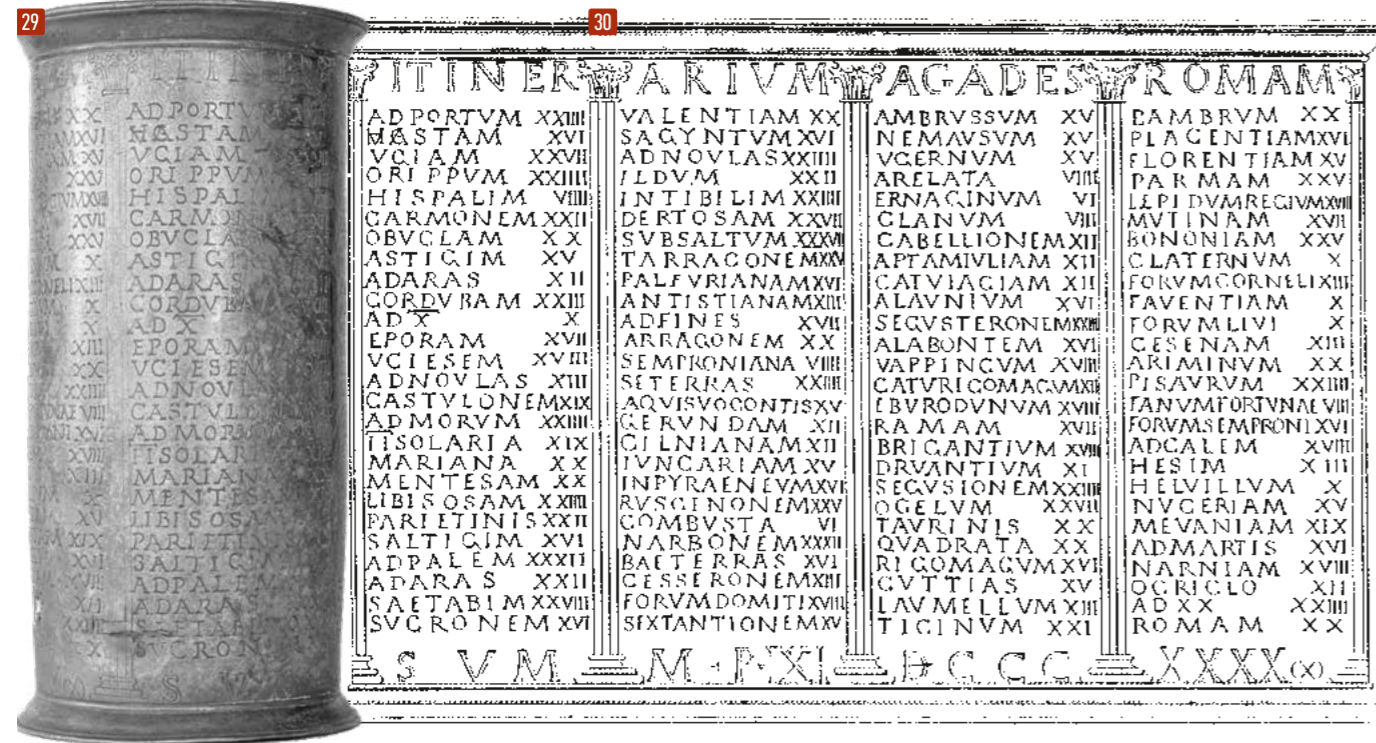 29
XX ADPORTV
HASTAM
VCIAM
XXV ORIPPVM
HISPAL
XVII CARMON
XXV OBVCLA
X ASTIGI
ADARAS
X CORDVBA
X AD X
XIII EPORAM
XX VCIESEM
XXIIII ADNOVL
VIII CASTVL
ADMOR
XVIII IISOLARI
XIII MARIANA
X MENTESA
XV LIBISOSA
XIX PARIETIN
XVI SALTIGI
XVIII ADPALEM
XII ADARAS
SAETABI
SVCRON
S V
30
ITINERARIVM AGADES ROMAM
ADPORTVM XXIIII
HASTAM XVI
VCIAM XXVII
ORIPPVM XXIIII
HISPALIM VIIII
CARMONEM XXII
OBVCLAM XX
ASTIGIM XV
ADARAS XII
CORDVBAM XXIII
AD X X
EPORAM XVII
VCIESEM XVIII
ADNOVLAS XIII
CASTVLONEM XIX
ADMORVM XXIIII
IISOLARIA XIX
MARIANA XX
MENTESAM XX
LIBISOSAM XXIIII
PARIETINIS XXII
SALTIGIM XVI
ADPALEM XXXII
ADARAS XXII
SAETABIM XXVIII
SVCRONEM XVI
VALENTIAM XX
SAGYNTVM XVI
ADNOVLAS XXIIII
ILDVM XXII
INTIBILIM XXIIII
DERTOSAM XXVII
SVBSALTVM XXXVII
TARRACONEM XXV
PALFVRIANAM XVI
ANTISTIANAM XIII
ADFINES XVII
ARRAGONEM XX
SEMPRONIANA VIIII
SETERRAS XXIIII
AQVISVOCONTIS XV
GERVNDAM XII
CILNIANAM XII
IVNCARIAM XV
INPYRAENEVM XVI
RVSCINONEM XXV
COMBVSTA VI
NARBONEM XXXII
BAETERRAS XVI
CESSERONEM XIII
FORVMDOMITI XVIII
SEXTANTIONEM XV
AMBRVSSVM XV
NEMAVSVM XV
VGERNVM XV
ARELATA VIIII
ERNAGINVM VI
GLANVM VIII
CABELLIONEM XII
APTAMIVLIAM XII
CATVIACIAM XII
ALAVNIVM XVI
SEGVSTERONEM XXIIII
ALABONTEM XVI
VAPPINCVM XVIII
CATVRIGOMAGVM XII
EBVRODVNVM XVIII
RAMAM XVII
BRIGANTIVM XVIII
DRVANTIVM XI
SEGVSIONEM XXIIII
OCELVM XXVII
TAVRINIS XX
QVADRATA XX
RIGOMAGVM XVI
CVTTIAS XV
LAVMELLVM XIII
TICINVM XXI
LAMBRVM XX
PLACENTIAM XVI
FLORENTIAM XV
PARMAM XXV
LEPIDVMREGIVM XVIII
MVTINAM XVII
BONONIAM XXV
CLATERNVM X
FORVMCORNELI XIIII
FAVENTIAM X
FORVMLIVI X
CESENAM XIII
ARIMINVM XX
PISAVRVM XXIIII
FANVMFORTVNAE VIII
FORVMSEMPRONI XVI
ADCALEM XVIII
HESIM XIIII
HELVILLVM X
NVCERIAM XV
MEVANIAM XIX
ADMARTIS XVI
NARNIAM XVIII
OCRICLO XII
AD XX XXIIII
ROMAM XX
S VM M·P·XI DCCC XXXX (X)